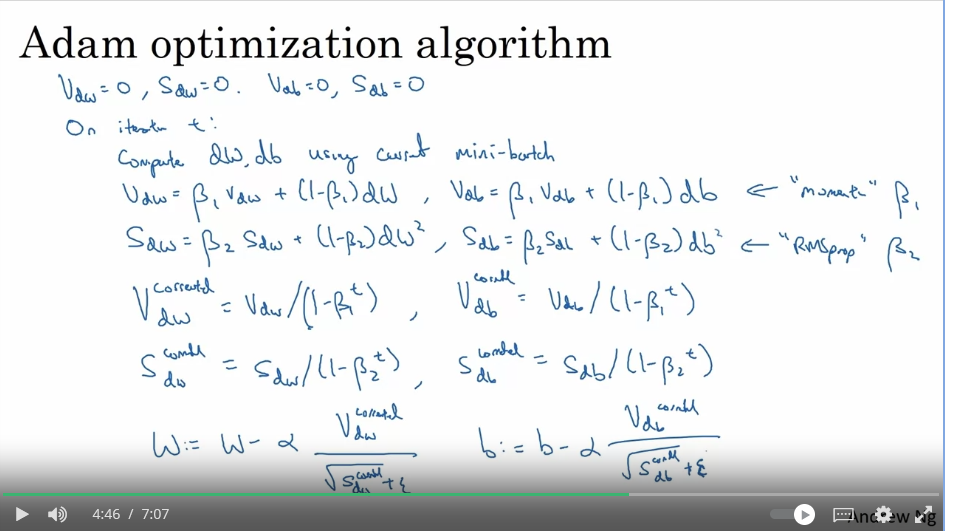 Adam optimization algorithm
V_dw = 0, S_dw = 0. V_db = 0, S_db = 0
On iteration t:
Compute dW, db using current mini-batch
V_dw = β₁ V_dw + (1-β₁) dW, V_db = β₁ V_db + (1-β₁) db ← "moment" β₁
S_dw = β₂ S_dw + (1-β₂) dW², S_db = β₂ S_db + (1-β₂) db² ← "RMSprop" β₂
V_dw^corrected = V_dw / (1-β₁^t), V_db^corrected = V_db / (1-β₁^t)
S_dw^corrected = S_dw / (1-β₂^t), S_db^corrected = S_db / (1-β₂^t)
W := W - α V_dw^corrected / (√S_dw^corrected + ε) b := b - α V_db^corrected / (√S_db^corrected + ε)
4:46 / 7:07
Andrew Ng